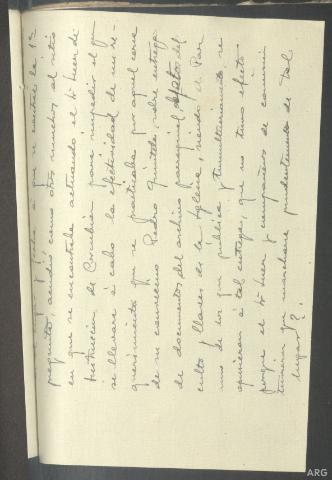 pregunta, acudió como otros muchos al sitio
en que se encontraba actuando el Sr Juez de
Instrucción de Corcubión para impedir el que
se llevara á cabo la efectividad de un re-
querimiento que se practicaba por aquel cerca
de su convecino Pedro Quintela, sobre entrega
de documentos del archivo parroquial, objetos del
culto y llaves de la Iglesia, siendo el Par
uno de los que pública y tumultuariamente se
opusieron á tal entrega, que no tuvo efecto
porque el Sr Juez y compañeros de comisión
tuvieron que marcharse prudentemente de tal
lugar?
ARG